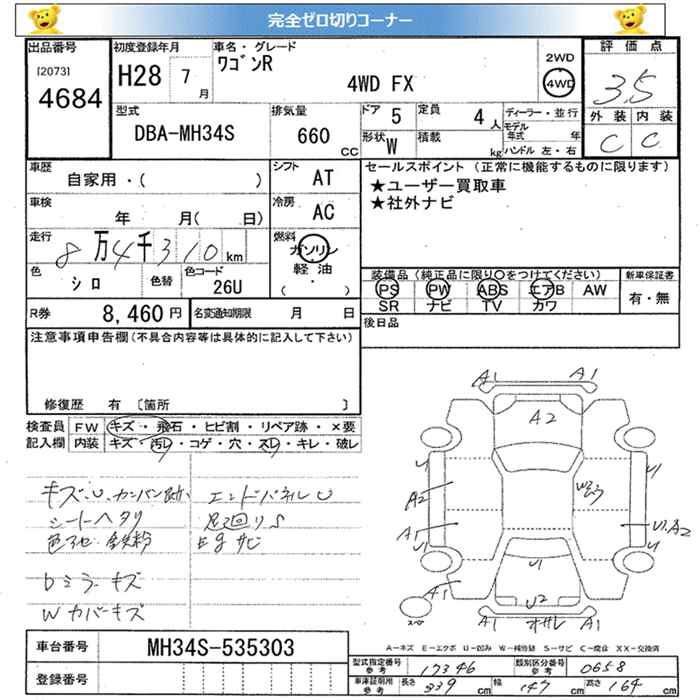 完全ゼロ切りコーナー
出品番号
[2073]
4684
初度登録年月
H28 7月
車名・グレード
ワゴンR
4WD FX
2WD
4WD
評価点
3.5
外装 内装
C C
型式
DBA-MH34S
排気量
660 CC
ドア 5
定員 4人
形状 W
積載 kg
ディーラー・並行
モデル年式 年
ハンドル 左・右
車歴
自家用・( )
シフト
AT
セールスポイント (正常に機能するものに限ります)
★ユーザー買取車
★社外ナビ
車検
年 月( 日)
冷房
AC
走行
8万4千310km
燃料
ガソリン
軽油
( ・ )
色
シロ
色替
色コード
26U
装備品 (純正品に限り○をつけてください)
PS PW ABS エアB AW
SR ナビ TV カワ
新車保証書
有・無
R券 8,460円
名変通知期限 月 日
後日品
注意事項申告欄 (不具合内容等は具体的に記入して下さい)
修復歴 有 〔箇所 〕
検査員記入欄
FW キズ・飛石・ヒビ割・リペア跡・×要
内装 キズ・汚レ・コゲ・穴・スレ・キレ・破レ
キズ、U、カンバン跡、
シートヘタリ
色アセ 鉄粉
bミラーキズ
Wカバーキズ
エンドパネルU
足廻りS
モgサビ
A1 A1
A2
U U
A2
A1
U1.A2
U U
A1
U
U2
オサレ
A1
A-キズ E-エクボ U-凹み W-補修跡 S-サビ C-腐食 XX-交換済
車台番号 MH34S-535303
登録番号
型式指定番号 参考 17346
類別区分番号 参考 0658
車庫証明用 参考 長さ 339cm 幅 147cm 高さ 164cm